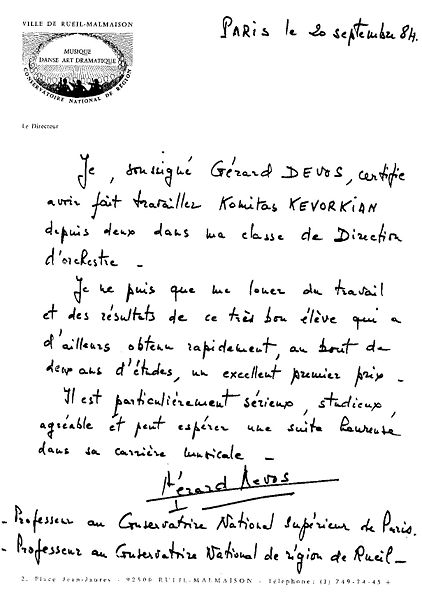 VILLE DE RUEIL-MALMAISON
MUSIQUE
DANSE ART DRAMATIQUE
CONSERVATOIRE NATIONAL DE RÉGION
Le Directeur
PARIS le 20 septembre 84.
Je, soussigné Gérard DEVOS, certifie
avoir fait travailler Komitas KEVORKIAN
depuis deux dans ma classe de Direction
d'orchestre -
Je ne puis que me louer du travail
et des résultats de ce très bon élève qui a
d'ailleurs obtenu rapidement, au bout de
deux ans d'études, un excellent premier prix -
Il est particulièrement sérieux, studieux,
agréable et peut espérer une suite heureuse
dans sa carrière musicale -
Gérard Devos
- Professeur au Conservatoire National Supérieur de Paris.
- Professeur au Conservatoire National de région de Rueil -
2, Place Jean-Jaurès - 92500 RUEIL-MALMAISON - Téléphone: (1) 749-74-45 +